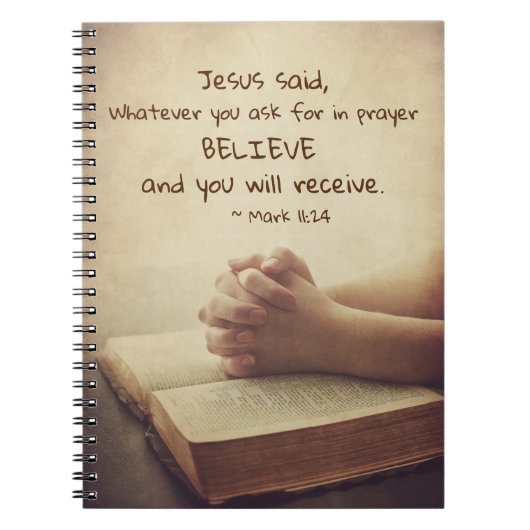 Jesus said,
Whatever you ask for in prayer
BELIEVE
and you will receive.
~ Mark 11:24